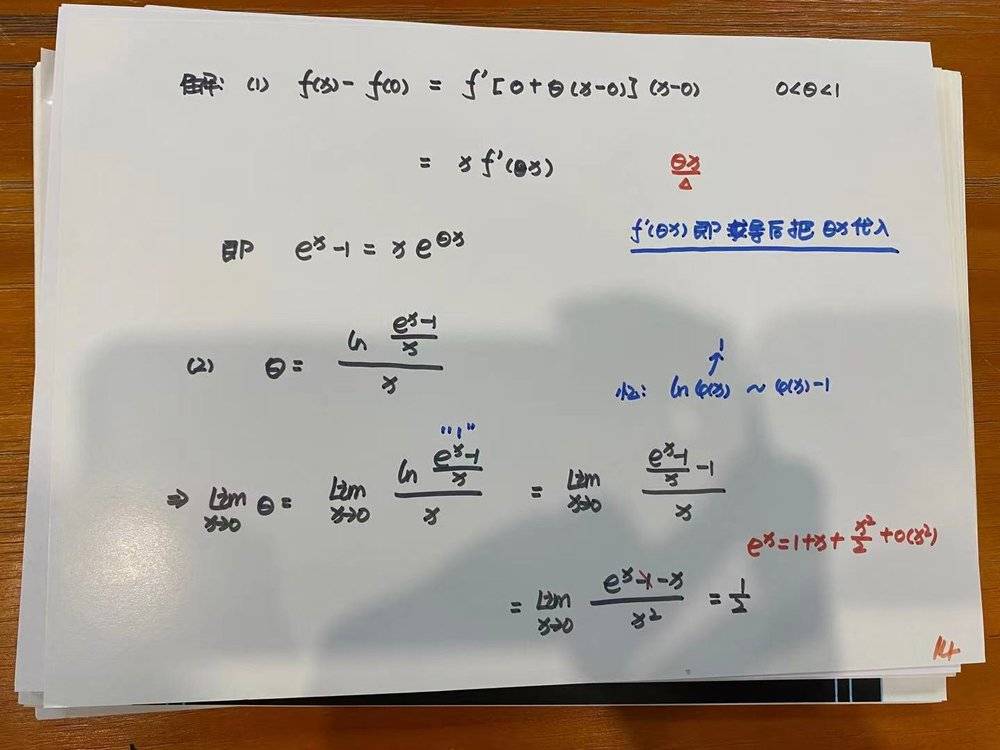 解: (1) f(x) - f(0) = f'[0+θ(x-0)] (x-0) 0<θ<1
= x f'(θx) θx
△
f'(θx) 即 求导后把 θx代入
即 e^x - 1 = x e^{θx}
(2) θ = \frac{ln \frac{e^x-1}{x}}{x}
1
↑
ln φ(x) ~ φ(x)-1
"1"
⇒ lim_{x→0} θ = lim_{x→0} \frac{ln \frac{e^x-1}{x}}{x} = lim_{x→0} \frac{\frac{e^x-1}{x} - 1}{x}
e^x = 1+x+\frac{x^2}{2}+o(x^2)
= lim_{x→0} \frac{e^x-1-x}{x^2} = \frac{1}{2}
14